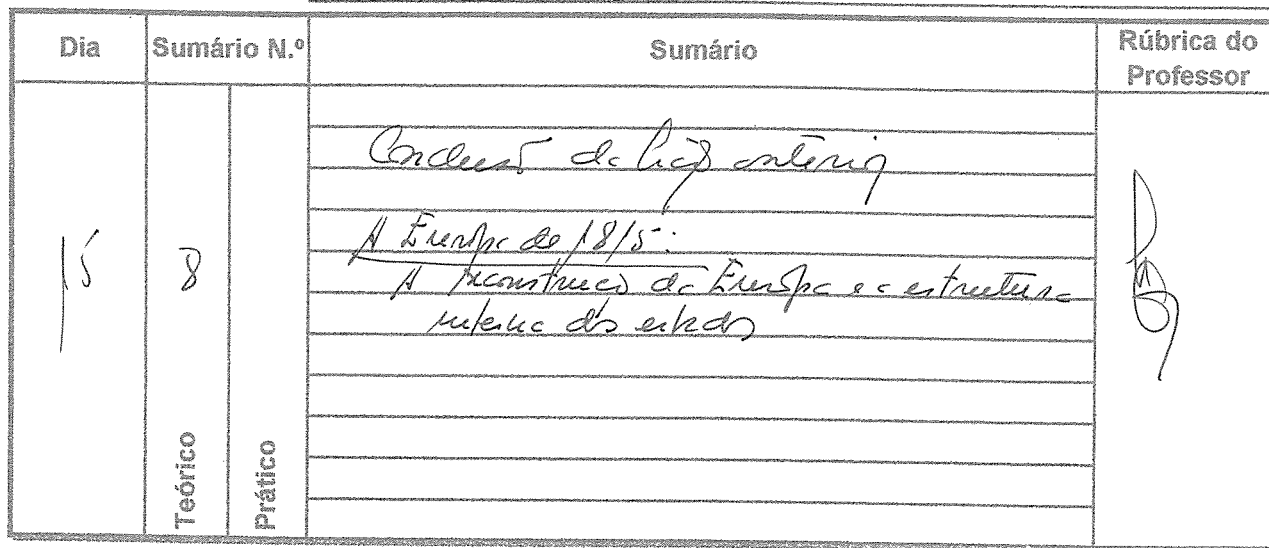 Dia
Sumário N.º
Sumário
Rúbrica do
Professor
15
8
Conclusão da lição anterior
A Europa de 1815:
A reconstrução da Europa e a estrutura
interna dos estados
Teórico
Prático